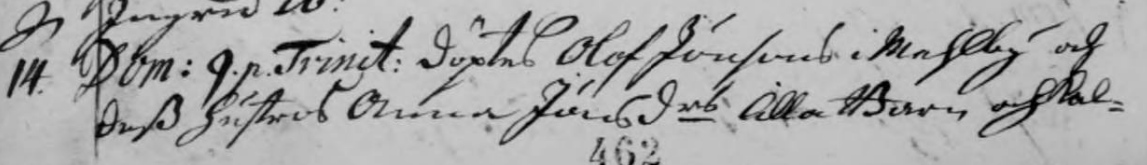 Ingred
14. Dom: 9. p. Trinit: döptes Olof Jönsons i Mehlby och
deß hustros Anna Jöns Drs lilla Barn och kal=
462